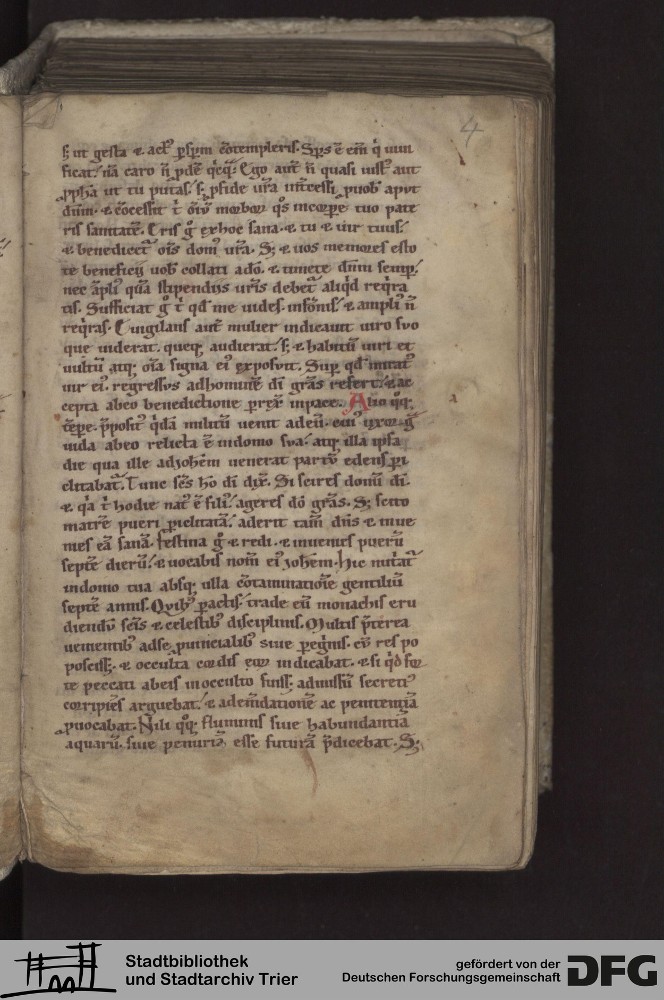 4
s; ut gesta ⁊ act᷒ p̱sp̱m c̄otempleris. Sp̄s ē eni᷒ q̇ uiui
ficat. nā caro n̄ p̱dē q̇cq̄; Ego aut̄ n̄ quasi iust᷒ aut
p̱pha ut tu putas. s; p̱ fide ur̄a int̄cessi p̱ uob̄ aput
dn̄m. ⁊ c̄ocessit t̄ oīu᷒ morbor̄ q̇s in corp̱e tuo pate
ris sanitatē. Eris g̊ ex hoc sana. ⁊ tu ⁊ uir tuus.
⁊ benedicet᷒ ois dom᷒ ur̄a. S; ⁊ uos memores esto
te beneficij uob̄ collati a dō. ⁊ timete dn̄m semp̱.
nec āpli᷒ quā stipendijs ur̄is debet᷒ aliq̇d req̇ra
tis. Sufficiat g̊ t̄ qd̄ me uides in sōnis. ⁊ ampli᷒ n̄
req̇ras. Euigilans aut̄ mulier indicauit uiro suo
que uiderat. queq; audierat. s; ⁊ habitū uiri et
uultū atq; oīa signa ei᷒ exposuit. Sup̱ qd̄ mirat᷒
uir ei᷒. regressus ad hominē dī grās refert. ⁊ ac
cepta ab eo benedictione p̱rex̄ in pace. Alio q̊q;
tēpe. p̄posit᷒ q̇dā militū uenit ad eū. cui᷒ uxor g̃
uida ab eo relicta ē in domo sua. atq; illa ipsa
die qua ille ad johēm uenerat partū edens p̱i
clitabat᷒. Tunc sc̄s hō dī dix̄. Si scires donū dī.
⁊ q̇a t̄ hodie nat᷒ ē fili᷒. ageres dō grās. S; scito
matrē pueri p̱iclitatā. aderit tam̄ dn̄s ⁊ inue
nies eā sanā. Festina g̊ ⁊ redi. ⁊ inuenies puerū
septē dierū. ⁊ uocabis nom̄ ei᷒ johēm. Hic nut᷒at᷒
in domo tua absq; ulla c̄otaminatiōe gentiliū
septē annis. Quib᷒ p̱actis. trade eū monachis eru
diendū sc̄is ⁊ celestib᷒ disciplinis. Multis p̄terea
uenientib᷒ ad se p̱uincialib᷒ siue p̱egnis. cū res po
poscisset. ⁊ occulta cordis eor̄ indicabat. ⁊ si q̇d for
te peccati ab eis in occulto fuisset admissū secreti᷒
corripiēs arguebat. ⁊ ad em̄dationē ac penitentiā
p̱uocabat. Nili q̊q; fluminis siue habundantiā
aquarū. siue penuriā esse futurā p̄dicebat. S;
a
Stadtbibliothek
und Stadtarchiv Trier
gefördert von der
Deutschen Forschungsgemeinschaft
DFG